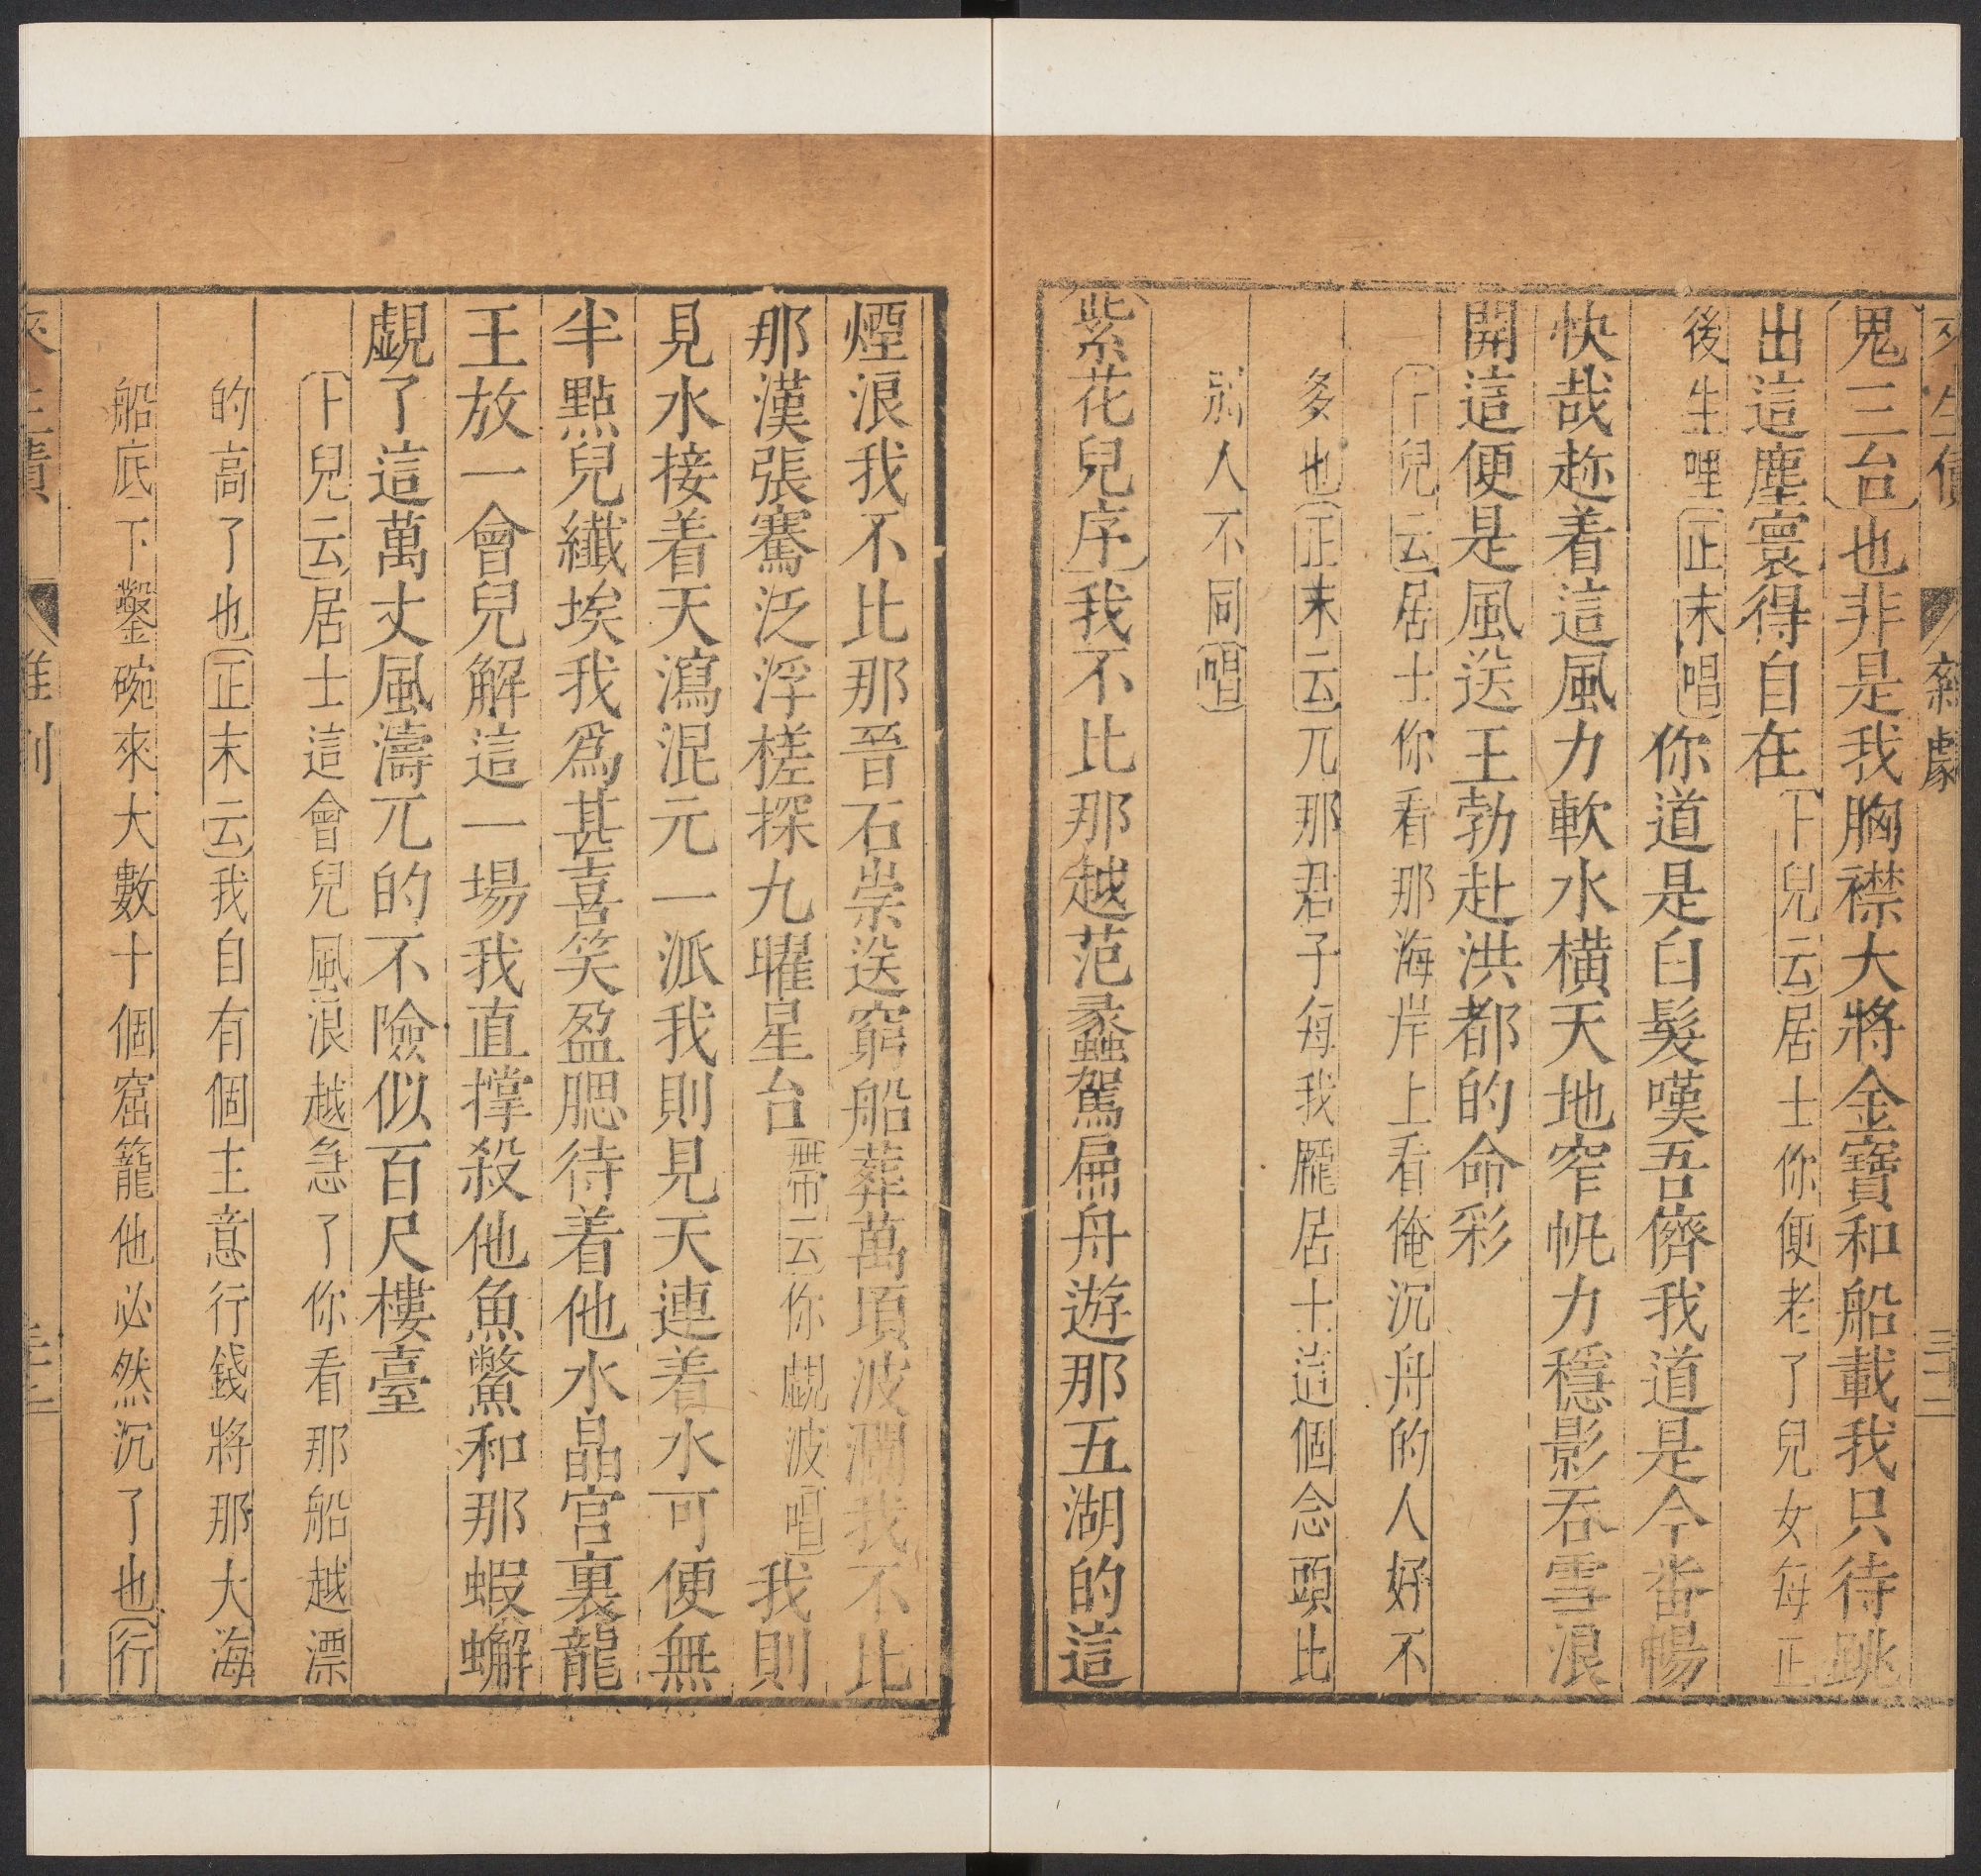 來生債 雜劇 三二
〔鬼三台〕也非是我胸襟大將金寶和船載我只待跳
出這塵寰得自在〔卜兒云〕居士你便老了兒女每正
後生哩〔正末唱〕你道是白髮嘆吾儕我道是今番暢
快哉趂着這風力軟水橫天地窄帆力穩影吞雪浪
開這便是風送王勃赴洪都的命彩
〔卜兒云〕居士你看那海岸上看俺沉舟的人好不
多也〔正末云〕兀那君子每我龐居士這個念頭比
別人不同〔唱〕
〔紫花兒序〕我不比那越范蠡駕扁舟遊那五湖的這
煙浪我不比那晉石崇送窮船葬萬頃波瀾我不比
那漢張騫泛浮槎探九曜星台〔帶云〕你覷波〔唱〕我則
見水接着天瀉混元一派我則見天連着水可便無
半點兒纖埃我爲甚喜笑盈腮待着他水晶宮裏龍
王放一會兒解這一場我直撑殺他魚鱉和那蝦蠏
覷了這萬丈風濤兀的不險似百尺樓臺
〔卜兒云〕居士這會兒風浪越急了你看那船越漂
的高了也〔正末云〕我自有個主意行錢將那大海
船底下鑿碗來大數十個窟籠他必然沉了也〔行